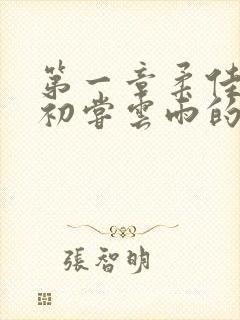 第一章柔佳
初嘗雲雨的
張智明